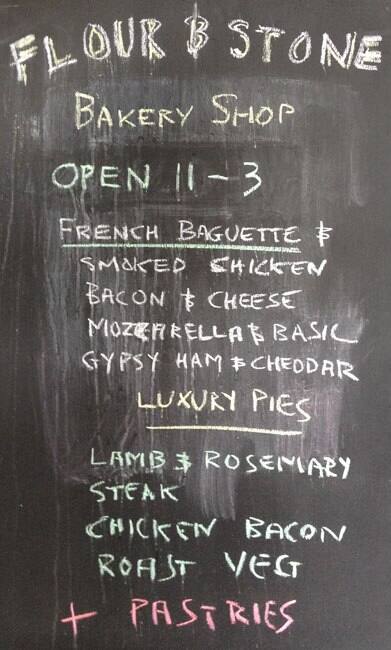 FLOUR & STONE
BAKERY SHOP
OPEN 11 - 3
FRENCH BAGUETTE &
SMOKED CHICKEN
BACON & CHEESE
MOZZARELLA & BASIL
GYPSY HAM & CHEDDAR
LUXURY PIES
LAMB & ROSEMARY
STEAK
CHICKEN BACON
ROAST VEG
+ PASTRIES